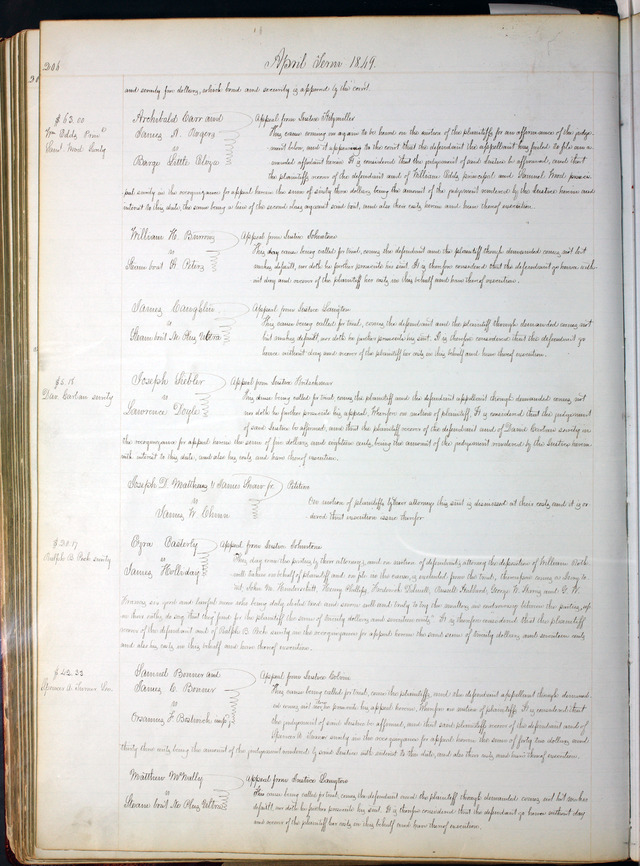 206
April Term 1849.
and seventy five dollars, which bond and security is approved by the court.
$63.00
Archibald Carr and
James A. Rogers
vs
Barge Little Aloya
Appeal from Justice
This cause coming on again to be heard on the motion of the plaintiffs for an affirmance of the judge-
ment below, and it appearing to the court that the defendant the appellant has failed to file an a-
mended affidavit herein. It is considered that the judgement of said Justice be affirmed, and that
the plaintiffs recover of the defendant and of William Eddy principal and Samuel Wood
security in the recognizance for appeal herein the sum of sixty three dollars, being the amount of the judgement rendered by the Justice herein and
interest to this date, the same being a lien of the second class against said boat, and also their costs herein and have thereof execution.
William H. Burring
vs
Steam boat St. Peters
Appeal from Justice Johnstone
This day cause being called for trial, comes the defendant and the plaintiff though demanded comes not but
makes default, nor doth he further prosecute his suit. It is therefore considered that the defendant go hence with-
out day and recover of the plaintiff her costs in this behalf and have thereof execution.
James Laughlin
vs
Steam boit
Appeal from Justice Langton
This cause being called for trial, comes the defendant and the plaintiff through demanded comes not
but makes default, nor doth he further prosecute his suit. It is therefore considered that the defendant go
hence without day and recover of the plaintiff her costs in this behalf and have thereof execution.
$5.18
Dav. Carlan surity
Joseph Siebler
vs
Lawrence Dogle
Appeal from Justice
This cause being called for trial comes the plaintiff and the defendant appellant though demanded comes not
nor doth he further prosecute his appeal, Wherefore on motion of plaintiff. It is considered that the judgement
of said Justice be affirmed, and that the plaintiff recover of the defendant and of David Carlan security in
the recognizance for appeal herein the sum of five dollars and eighteen cents, being the amount of the judgement rendered by the Justice herein
with interest to this date, and also his costs and have thereof execution.
Joseph D. Matthews & James Shaw Jr.
vs
James W. Chinn
Petition
On motion of plaintiffs by their attorney this suit is dismissed at their costs, and it is or-
dered that execution issue therefor
$20.17
Ralph B. Peck surity
Ezra Casterly
vs
James Holliday
Appeal from Justice Johnstone
This day come the parties by their attorneys, and on motion of defendants attorney the deposition of William
taken on behalf of plaintiff and on file in this cause, is excluded from the trial, thereupon comes a Jury to
wit, John M. Frederick
Francis, six good and lawful men who being duly elected tried and sworn well and truly to try the matters in controversy between the parties, up-
on their oaths do say that they find for the plaintiff the sum of twenty dollars and seventeen cents. It is therefore considered that the plaintiff
recover of the defendant and of Ralph B. Peck surity in the recognizance for appeal herein the said sum of twenty dollars and seventeen cents
and also his costs in this behalf and have thereof execution.
$42.33
Samuel Bonner and
James C. Bonner
vs
Appeal from Justice
This cause being called for trial, come the plaintiffs, and the defendant appellant through demand-
ed comes not nor prosecute his appeal herein, Wherefore on motion of plaintiffs. It is considered that
the judgement of said Justice be affirmed, and that said plaintiffs recover of the defendant and of
surity in the recognizance for appeal herein the sum of forty two dollars and
thirty three cents, being the amount of the judgement rendered by said Justice with interest to this date, and also their costs and have thereof execution.
Matthew McNally
vs
Steam boit
Appeal from Justice Langton
This cause being called for trial, comes the defendant and the plaintiff through demanded comes not but makes
default, nor doth he further prosecute his suit. It is therefore considered that the defendant go hence without day
and recover of the plaintiff her costs in this behalf and have thereof execution.